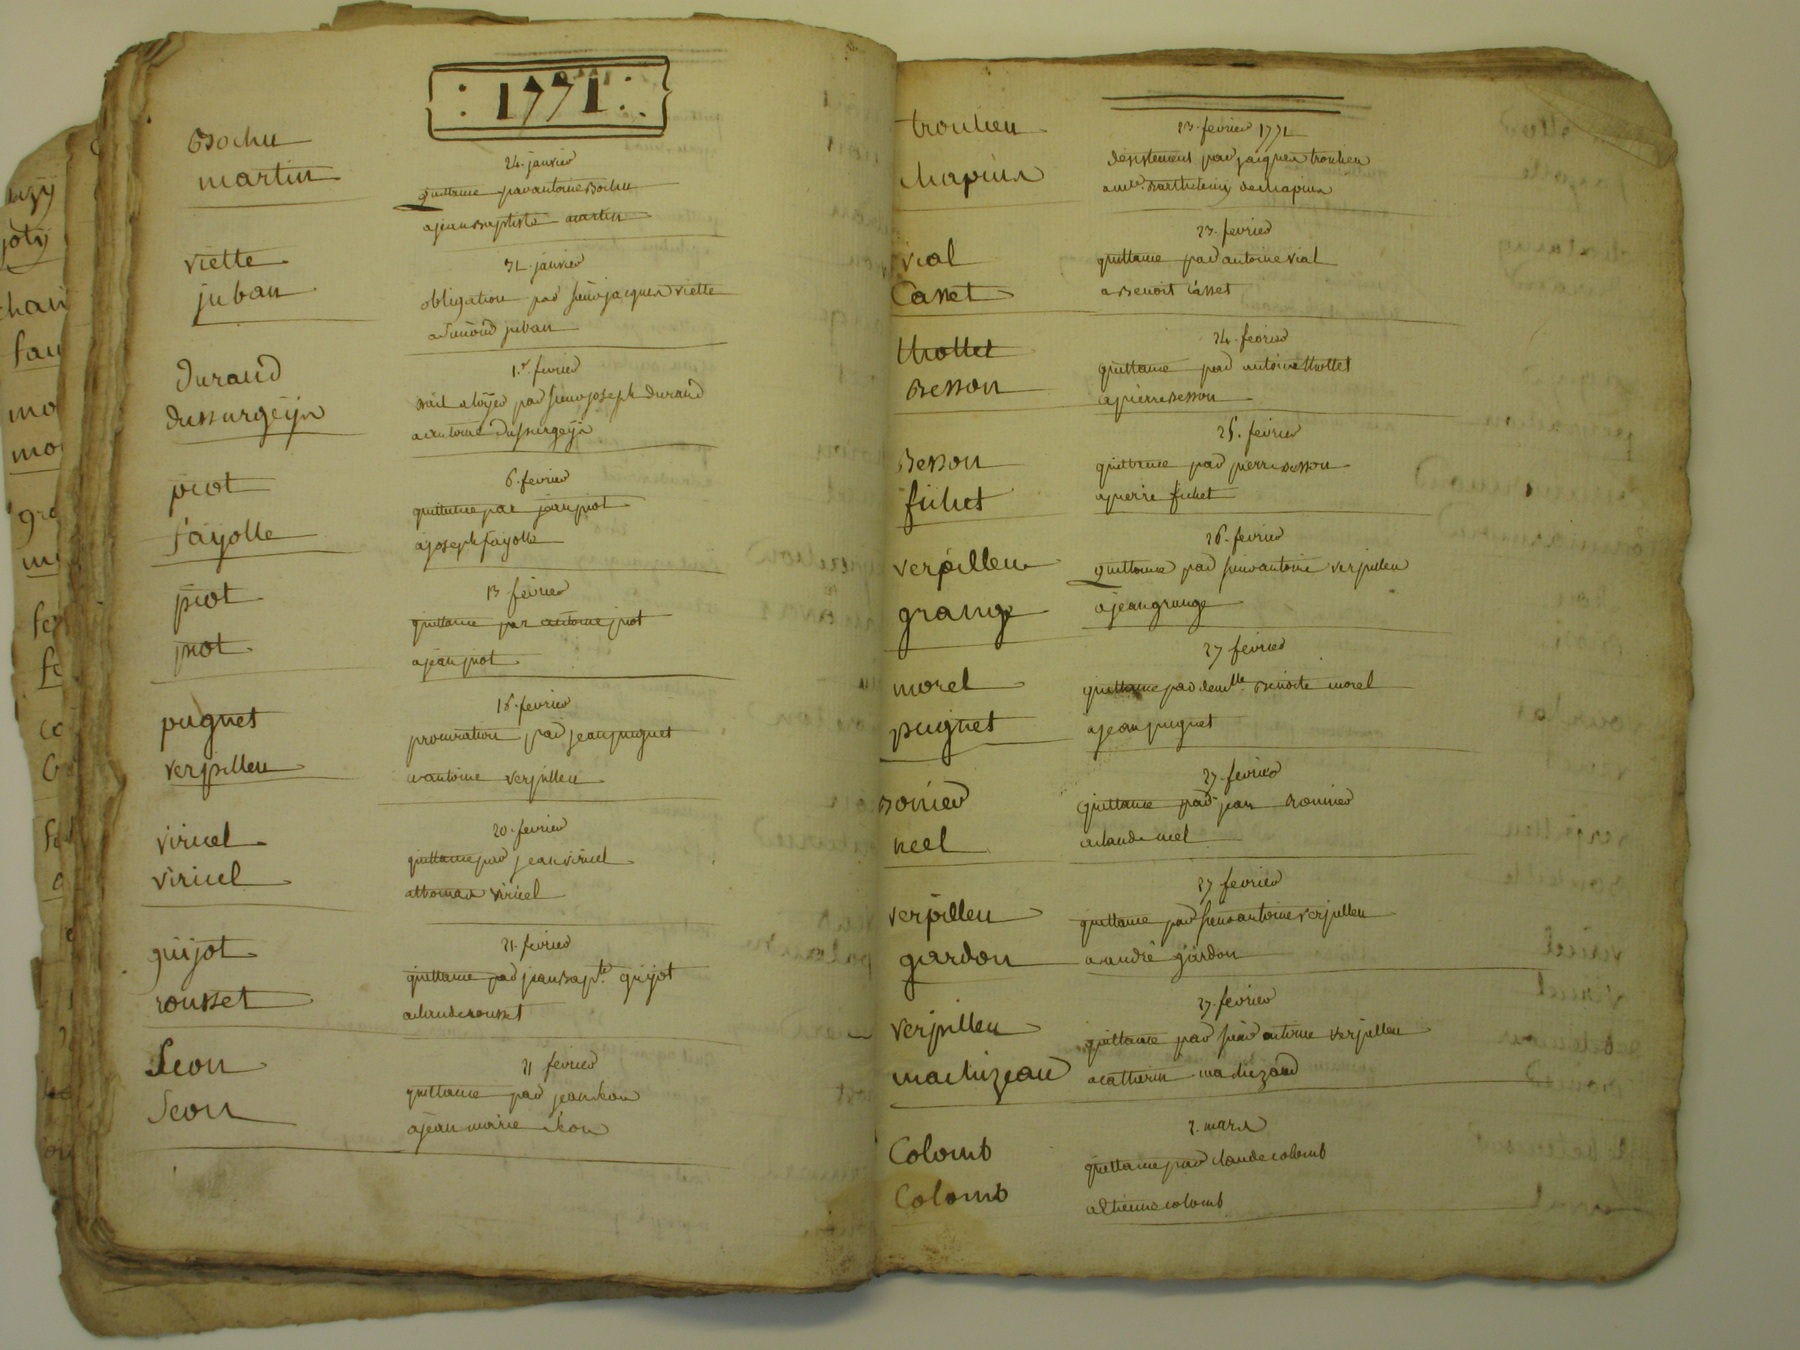 : 1771 :
Bochu
martin
24. janvier
quittance par antoine Bochu
a jean Baptiste martin
viette
juban
31. janvier
obligation par sieur jacques viette
a juban
durand
dussurgeÿs
1.er fevrier
Bail a loÿer par sieur joseph durand
a antoine dussurgeÿs
piot
fayolle
6. fevrier
quittance par jean piot
a joseph fayolle
piot
piot
13. fevrier
quittance par antoine piot
a jean piot
pugnet
verpilleu
16. fevrier
procuration par jean pugnet
a antoine verpilleu
viricel
viricel
20. fevrier
quittance par jean viricel
a thomas viricel
guÿot
rousset
21. fevrier
quittance par jean Bap.te guÿot
a claude rousset
Seon
Seon
21 fevrier
quittance par jean Seon
a jean marie Seon
troulieu
chapuis
23. fevrier 1771
desistement par jacques troulieu
barthelemy chapuis
vial
Casset
23. fevrier
quittance par antoine vial
a Benoit Casset
thollet
Besson
24. fevrier
quittance par antoine thollet
a pierre Besson
Besson
fichet
25. fevrier
quittance par pierre Besson
a pierre fichet
verpilleu
grange
26. fevrier
quittance par sieur antoine verpilleu
a jean grange
morel
pugnet
27 fevrier
quittance par demlle. Benoite morel
a jean pugnet
Bonier
neel
27. fevrier
quittance par jean Bonnier
a claude neel
verpilleu
gardon
27 fevrier
quittance par sieur antoine verpilleu
a andré gardon
verpilleu
machizeau
27. fevrier
quittance par sieur antoine verpilleu
a catherin machizaud
Colomb
Colomb
2. mars
quittance par claude colomb
a Etienne colomb